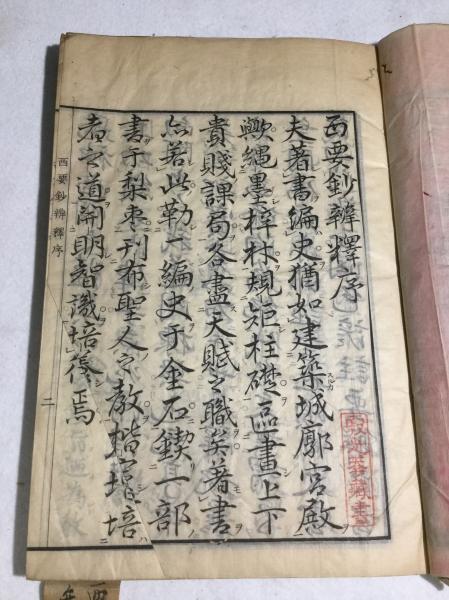 西要鈔辨釋序
夫著書編史猶如建築城廓宮殿
歟繩墨梓材規矩柱礎區畫上下
貴賤課局各盡天賦之職矣著書
亦若此勒一編史于金石鍥一部
書于梨棗刊布聖人之教楷
者之道開明智識培養焉
西要鈔辨釋序
二